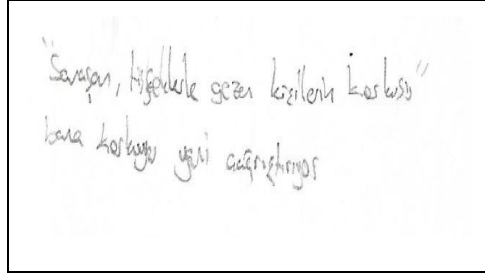 "Savaşan, tüfeklerle gezen kişilerin korkusu"
bana korkuyu yani çağrıştırıyor